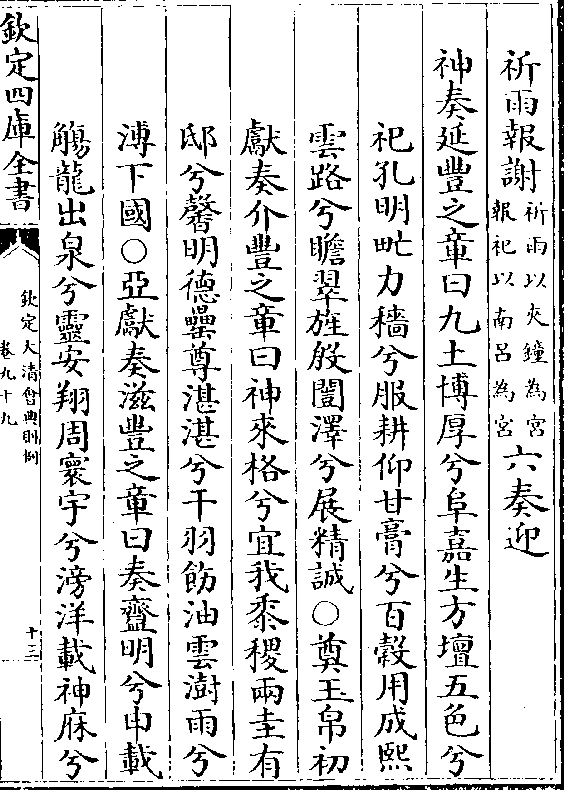 祈雨報謝祈雨以夾鐘為宮報祀以南呂為宮六奏迎
神奏延豐之章曰九土博厚兮阜嘉生方壇五色兮
祀孔明甿力穡兮服耕仰甘膏兮百穀用成熙
雲路兮瞻翠旌殷闓澤兮展精誠○奠玉帛初
獻奏介豐之章曰神來格兮宜我黍稷兩圭有
邸兮馨明德罍尊湛湛兮干羽飭油雲澍雨兮
溥下國○亞獻奏滋豐之章曰奏齍明兮申載
觴龍出泉兮靈安翔周寰宇兮滂洋載神庥兮
欽定四庫全書
欽定大清會典則例
卷九十九
十三